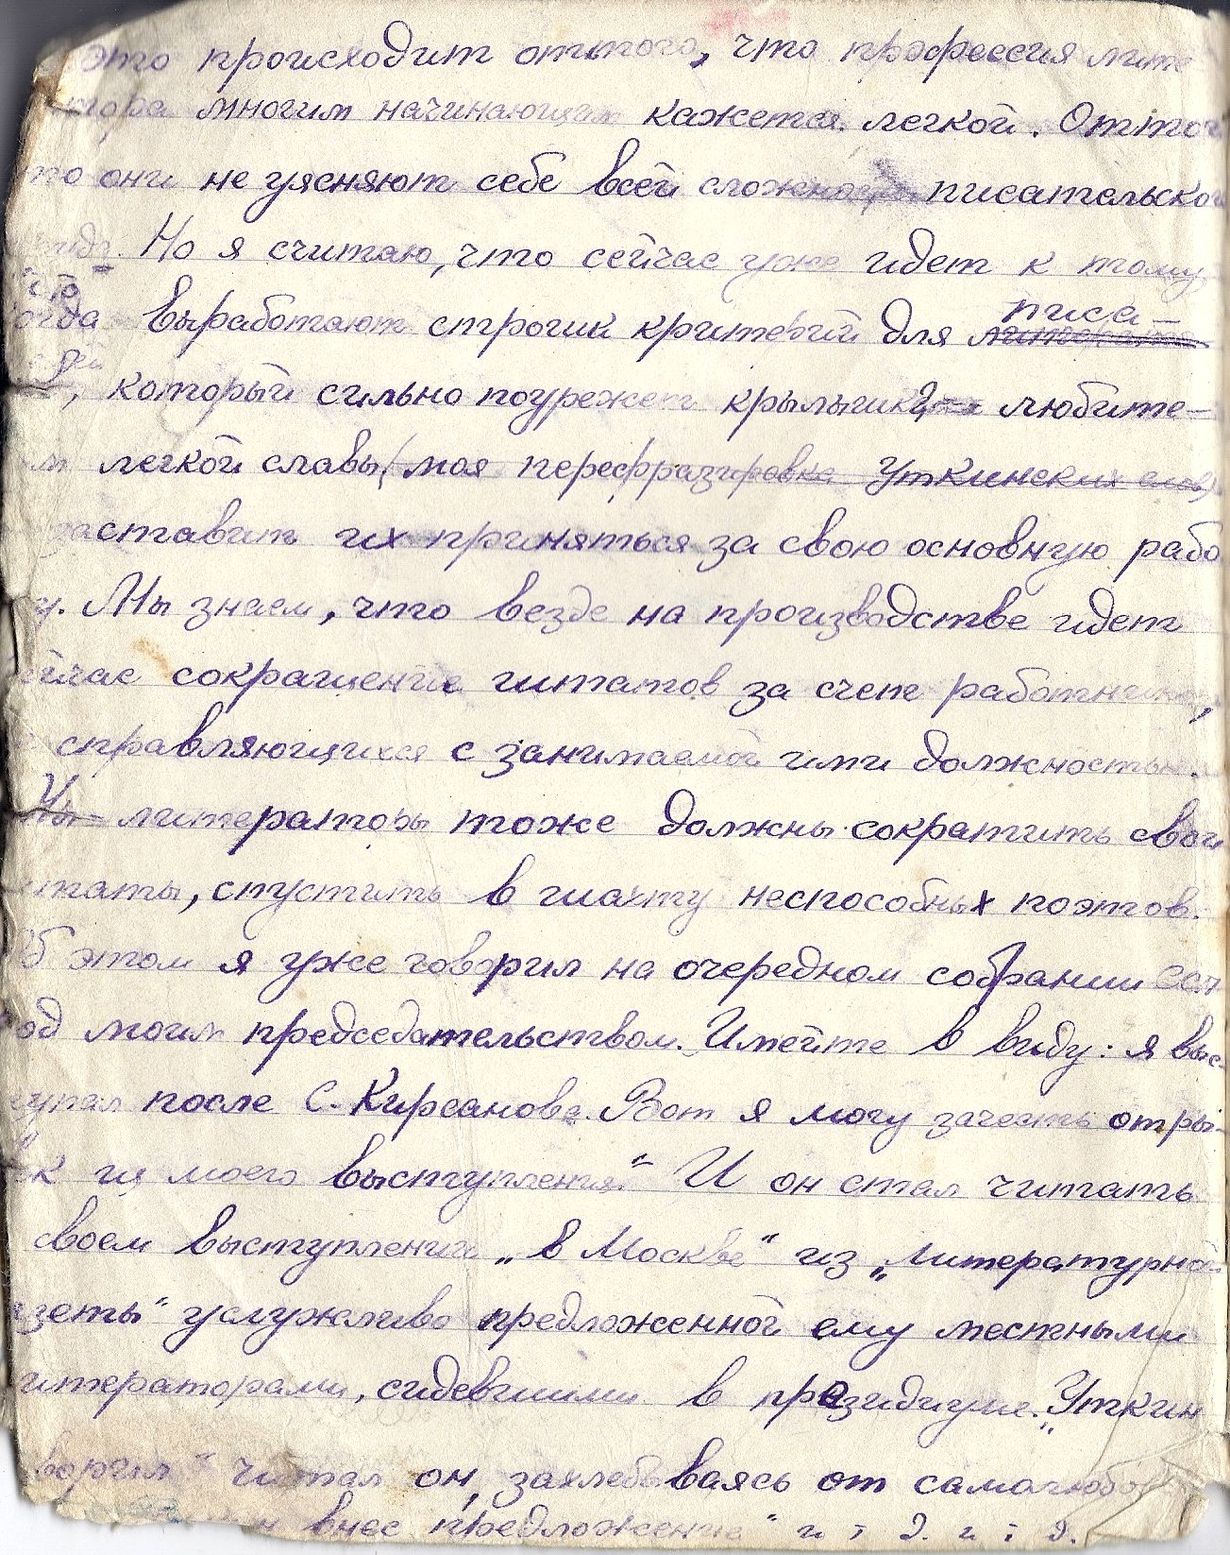 это происходит оттого, что профессия лите
тора многим начинающим кажется легкой. Оттог
то они не уясняют себе всей сложности писательской
Но я считаю, что сейчас уже идет к тому
что
огда выработают строгий критерий для литератор писа-
ей, который сильно поурежет крылышки любите-
м легкой славы (моя перефразировка Уткинских слов)
заставит их приняться за свою основную рабо
у. Мы знаем, что везде на производстве идет
йчас сокращение штатов за счет работников,
справляющихся с занимаемой ими должностью.
Мы литераторы тоже должны сократить свои
штаты, спустить в шахту неспособных поэтов.
Об этом я уже говорил на очередном собрании ССП
под моим председательством. Имейте в виду: я выс-
тупал после С. Кирсанова. Вот я могу зачесть отры-
ок из моего выступления." И он стал читать
своем выступлении „в Москве" из „Литературной
азеты" услужливо предложенной ему местными
итераторами, сидевшими в президиуме. „Уткин
ворил" читал он, захлебываясь от самолюбо
н внес предложение" и т. д. и т. д.